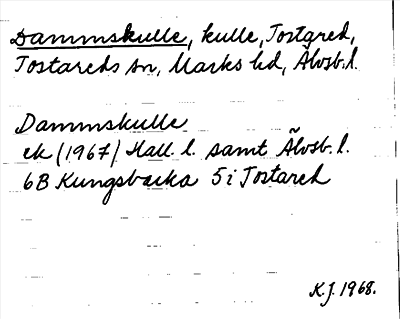 Dammskulle, kulle, Tostared,
Tostareds sn, Marks hd, Älvsb. l.
Dammskulle
ek (1967) Hall. l. samt Älvsb. l.
6B Kungsbacka 5i Tostared
K.J. 1968.